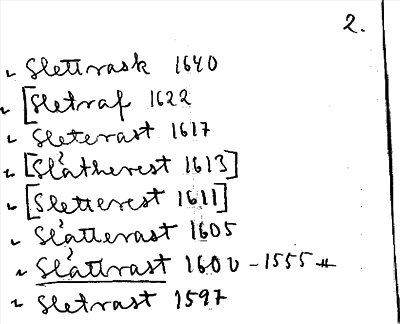 2.
~ Slettrask 1640
~ [Sletraf 1622
~ Sleterast 1617
~ [Slåtherest 1613]
~ [Sletterest 1611]
~ Slåtterast 1605
~ Slåttrast 1600 - 1555 #
~ Sletrast 1597